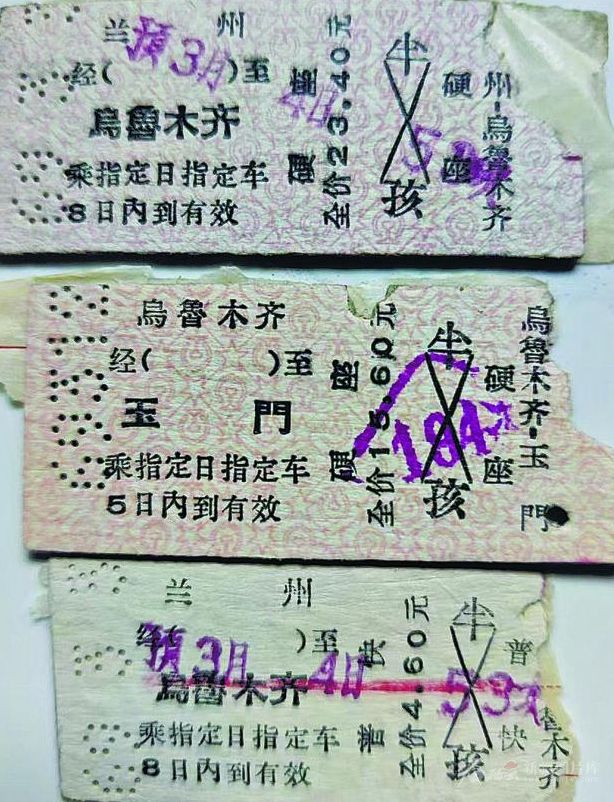 兰州
预3月4日
经( )至
烏魯木齐
乘指定日指定车
8日内到有效
硬座
全价23.40元
半
孩
硬座
州-烏魯木齐
烏魯木齐
经( )至
玉門
乘指定日指定车
5日内到有效
硬座
全价15.60元
半
孩
184次
硬座
烏魯木齐-玉門
兰州
经( )至
预3月4日
53次
烏魯木齐
乘指定日指定车
8日内到有效
普快
全价4.60元
半
孩
普快
魯木齐